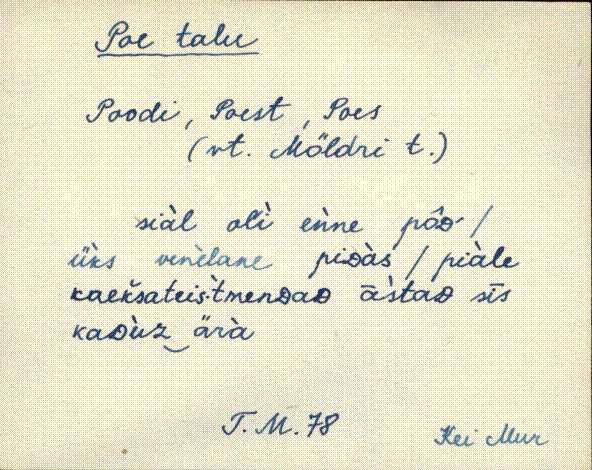 Poe talu
Poodi, Poest, Poes
(vt. Möldri t.)
siàl olì eǹne pôᴅ /
üks venèlane piᴅàs / piàle
kaeksateis̀tmenᴅaᴅ āstaᴅ sīs
kaᴅùz‿ärà
T.M.78
Kei Mur